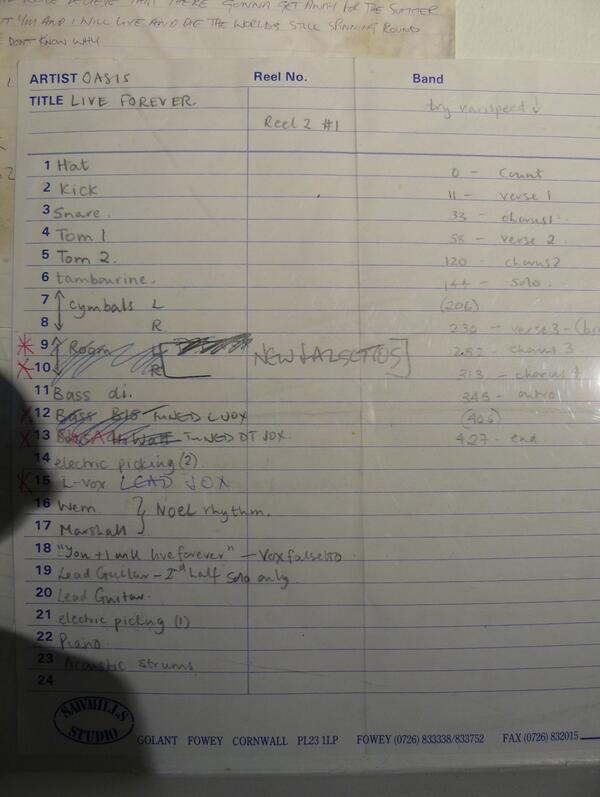 GONNA GET AWAY FOR THE SUMMER
YOU AND I WILL LIVE AND DIE THE WORLDS STILL SPINNING ROUND
DONT KNOW WHY
ARTIST OASIS Reel No. Band
TITLE LIVE FOREVER try varispeed ↓
Reel 2 #1
1 Hat 0 - Count
2 Kick 11 - verse 1
3 Snare. 33 - chorus 1
4 Tom 1 58 - verse 2
5 Tom 2. 120 - chorus 2
6 tambourine. 144 - solo
7 Cymbals L (206)
8 R 230 - verse 3 -
9 Room L 252 - chorus 3
NEW FALSETTOS
10 R 313 - chorus 4
11 Bass di. 345 - outro
12 Bass TUNED L VOX (405)
13 TUNED DT VOX. 427 - end
14 electric picking (2)
15 L-vox LEAD VOX
16 Wem
Noel rhythm.
17 Marshall
18 "You + I will live forever" - Vox falsetto
19 Lead Guitar - 2nd half solo only
20 Lead Guitar
21 electric picking (1)
22 Piano
23 Acoustic strums
24
SAWMILLS STUDIO
GOLANT FOWEY CORNWALL PL23 1LP FOWEY (0726) 833338/833752 FAX (0726) 832015